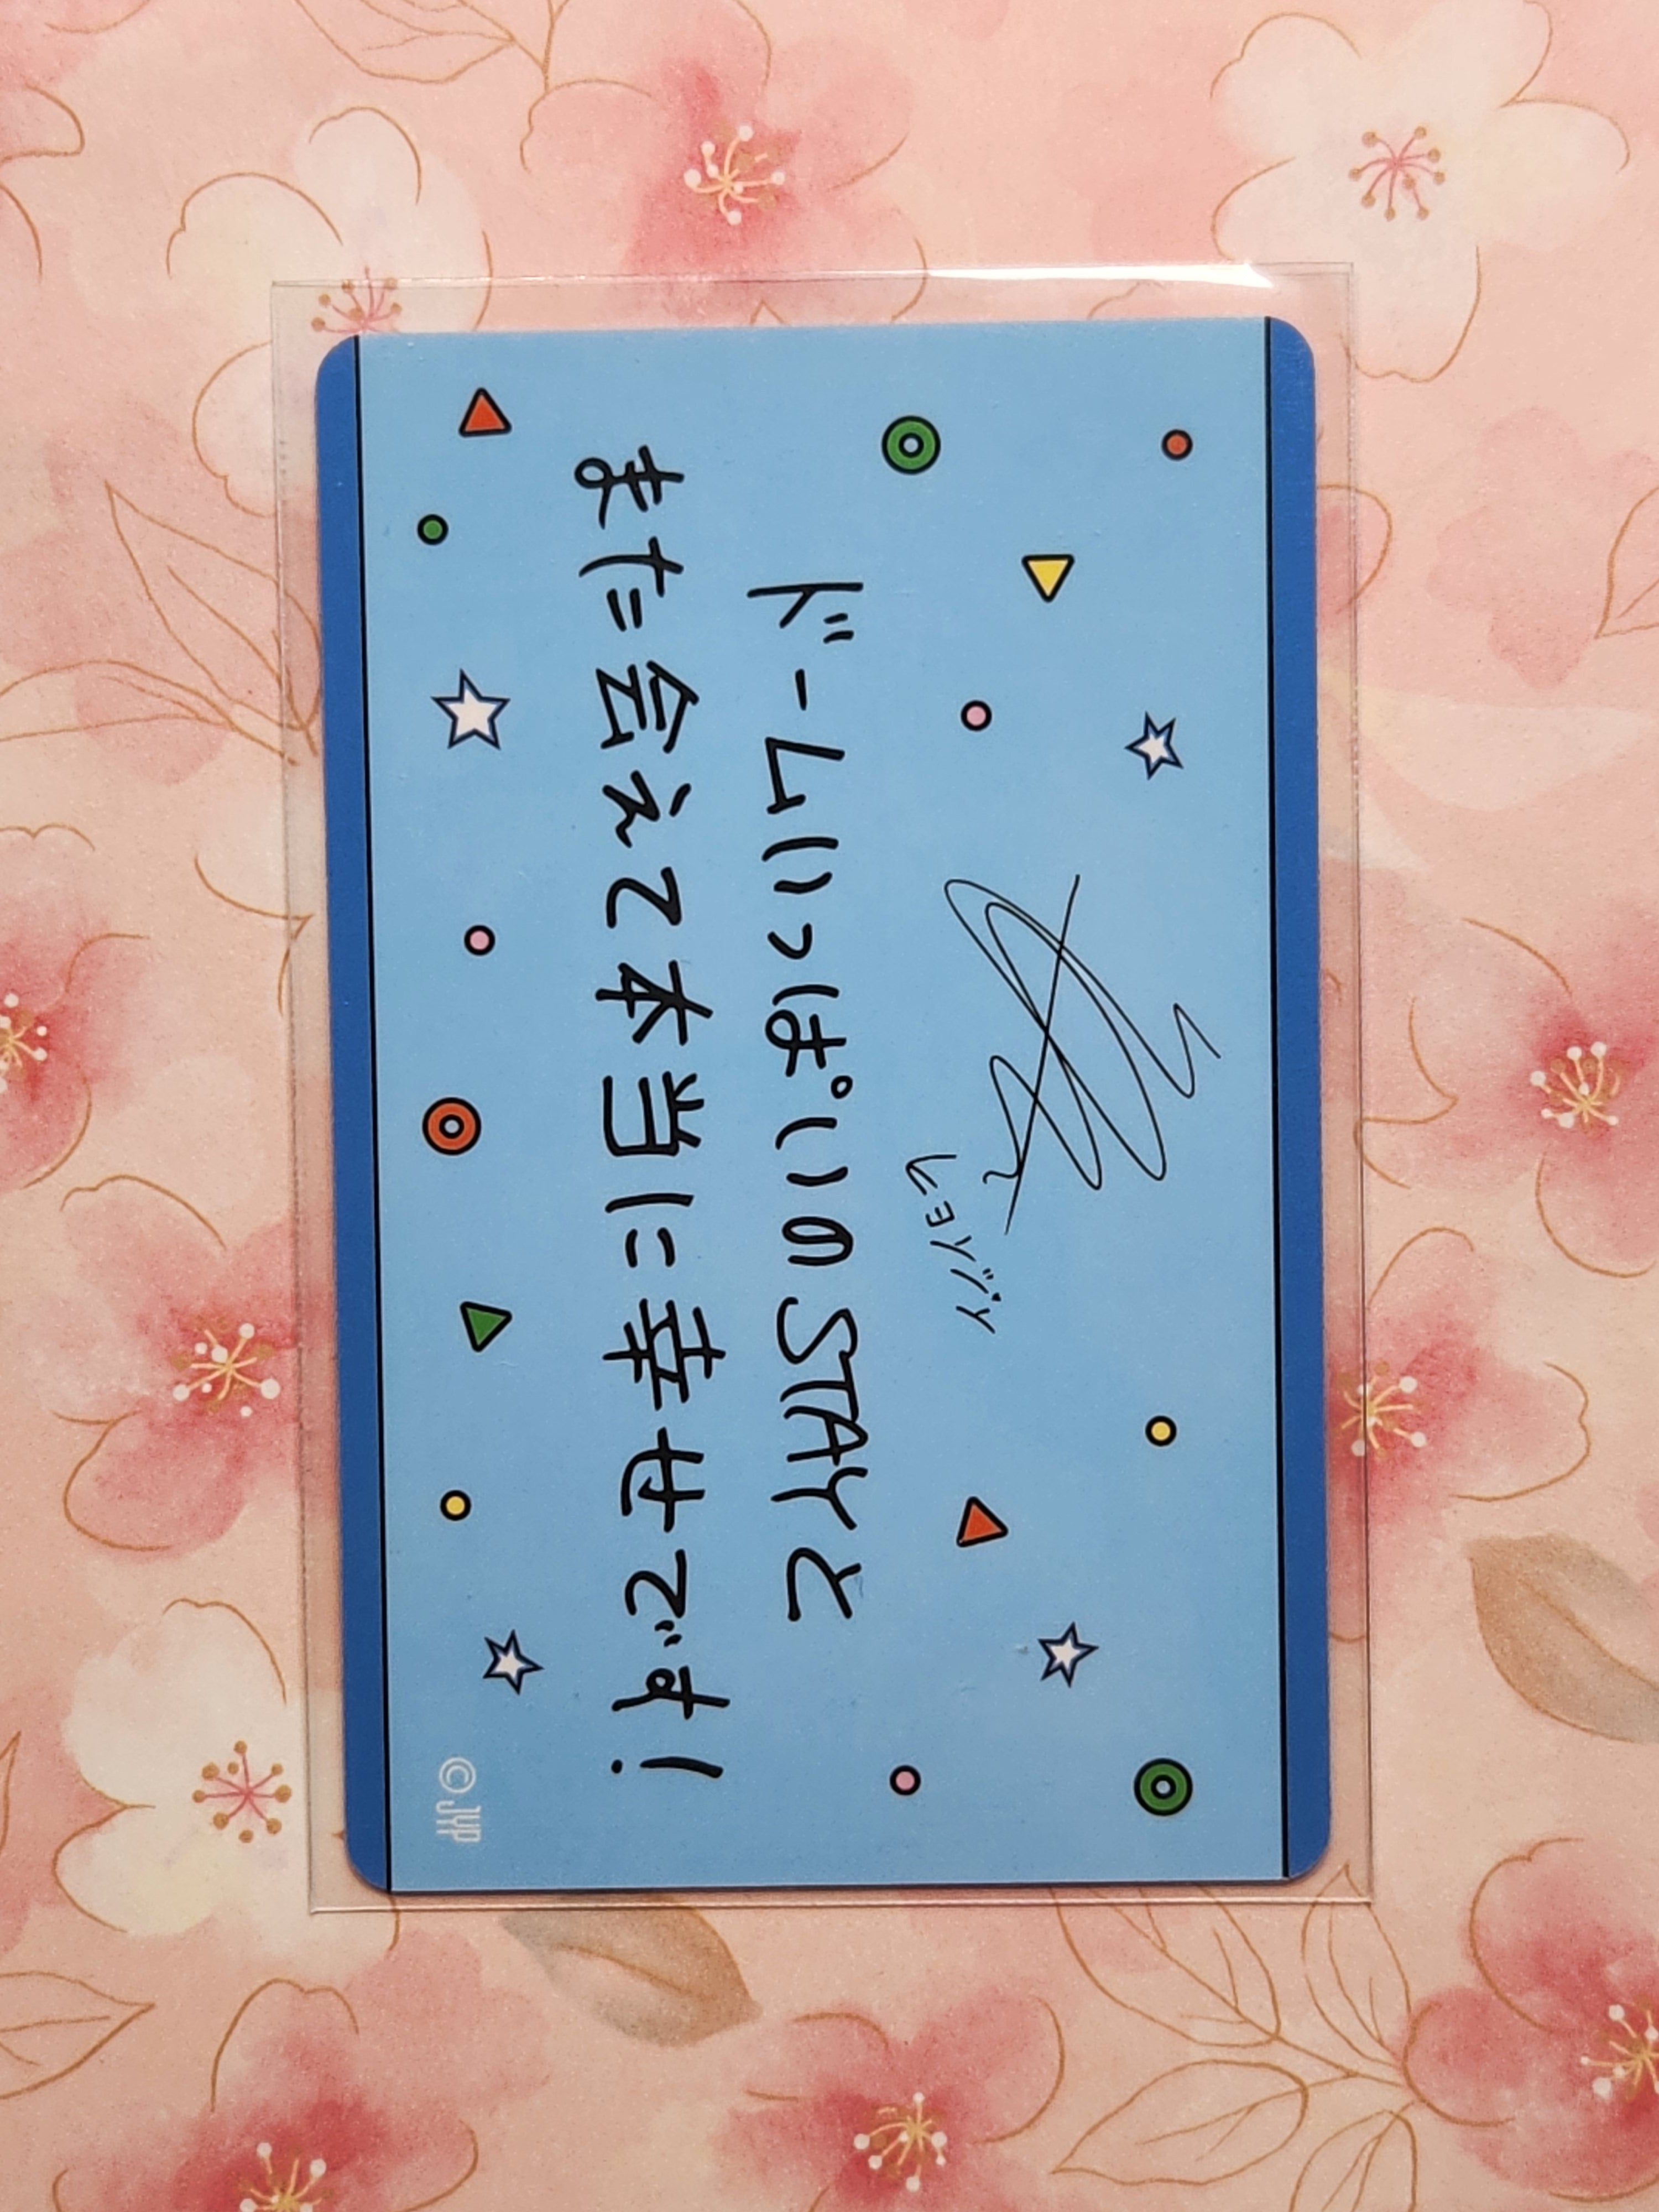 ヒョンジン
ドームいっぱいのSTAYと
また会えて本当に幸せです!
©JYP